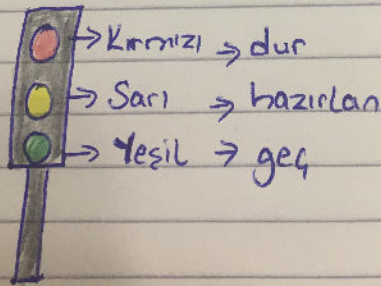 → Kırmızı → dur
→ Sarı → hazırlan
→ Yeşil → geç